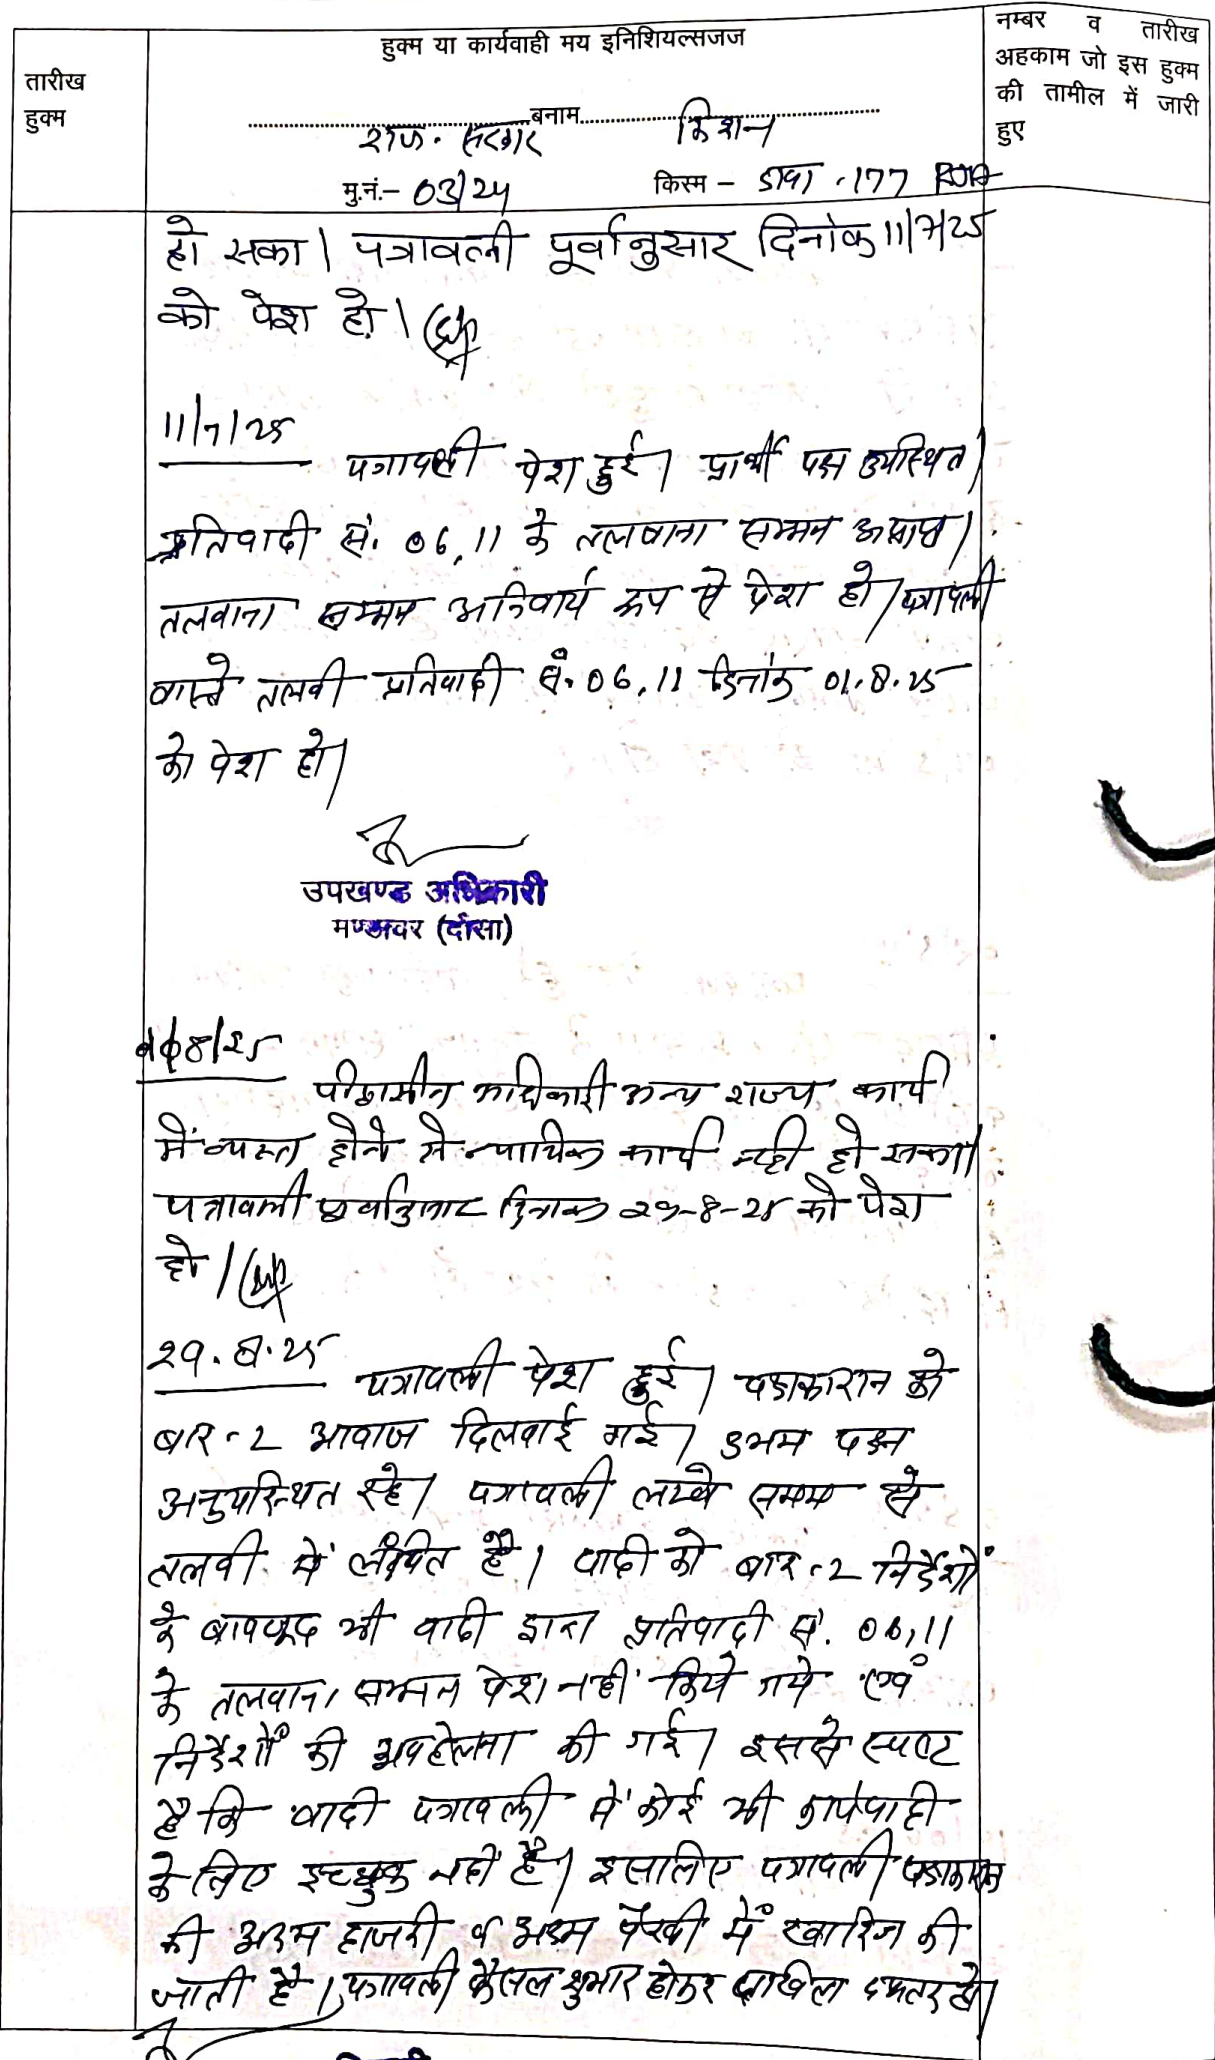 हुक्म या कार्यवाही मय इनिशियल्सजज
नम्बर व तारीख
अहकाम जो इस हुक्म
की तामील में जारी
हुए
तारीख
हुक्म
बनाम
राज. सरकार किशन
मु.नं.- 03/24 किस्म - दावा .177 RTA
हो सका। पत्रावली पूर्वानुसार दिनांक 11/7/25
को पेश हो।
11/7/25
पत्रावली पेश हुई। प्रार्थी पक्ष उपस्थित।
प्रतिवादी सं. 06,11 के तलवाना सम्मन अप्राप्त।
तलवाना सम्मन अनिवार्य रूप से पेश हो। पत्रावली
वास्ते तलवी प्रतिवादी सं. 06,11 दिनांक 01.8.25
को पेश हो।
उपखण्ड अधिकारी
मण्डावर (दौसा)
01/08/25
पीठासीन अधिकारी अन्य राज्य कार्य
में व्यस्त होने से न्यायिक कार्य नही हो सका।
पत्रावली पूर्वानुसार दिनांक 29-8-25 को पेश
हो।
29.8.25
पत्रावली पेश हुई। पक्षकारान को
बार-2 आवाज दिलवाई गई। उभय पक्ष
अनुपस्थित रहे। पत्रावली लम्बे समय से
तलवी में लंबित है। वादी को बार-2 निर्देशों
के बावजूद भी वादी द्वारा प्रतिवादी सं. 06,11
के तलवाना सम्मन पेश नहीं किये गये एवं
निर्देशों की अवहेलना की गई। इससे स्पष्ट
है कि वादी पत्रावली में कोई भी कार्यवाही
के लिए इच्छुक नहीं है। इसलिए पत्रावली पक्षकारान
की अदम हाजरी व अदम पैरवी में खारिज की
जाती है। पत्रावली फैसल शुमार होकर दाखिल दफ्तर हो।